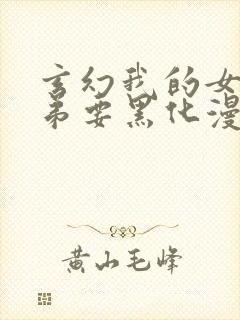 玄幻我的女
弟要黑化漫
黄山毛峰